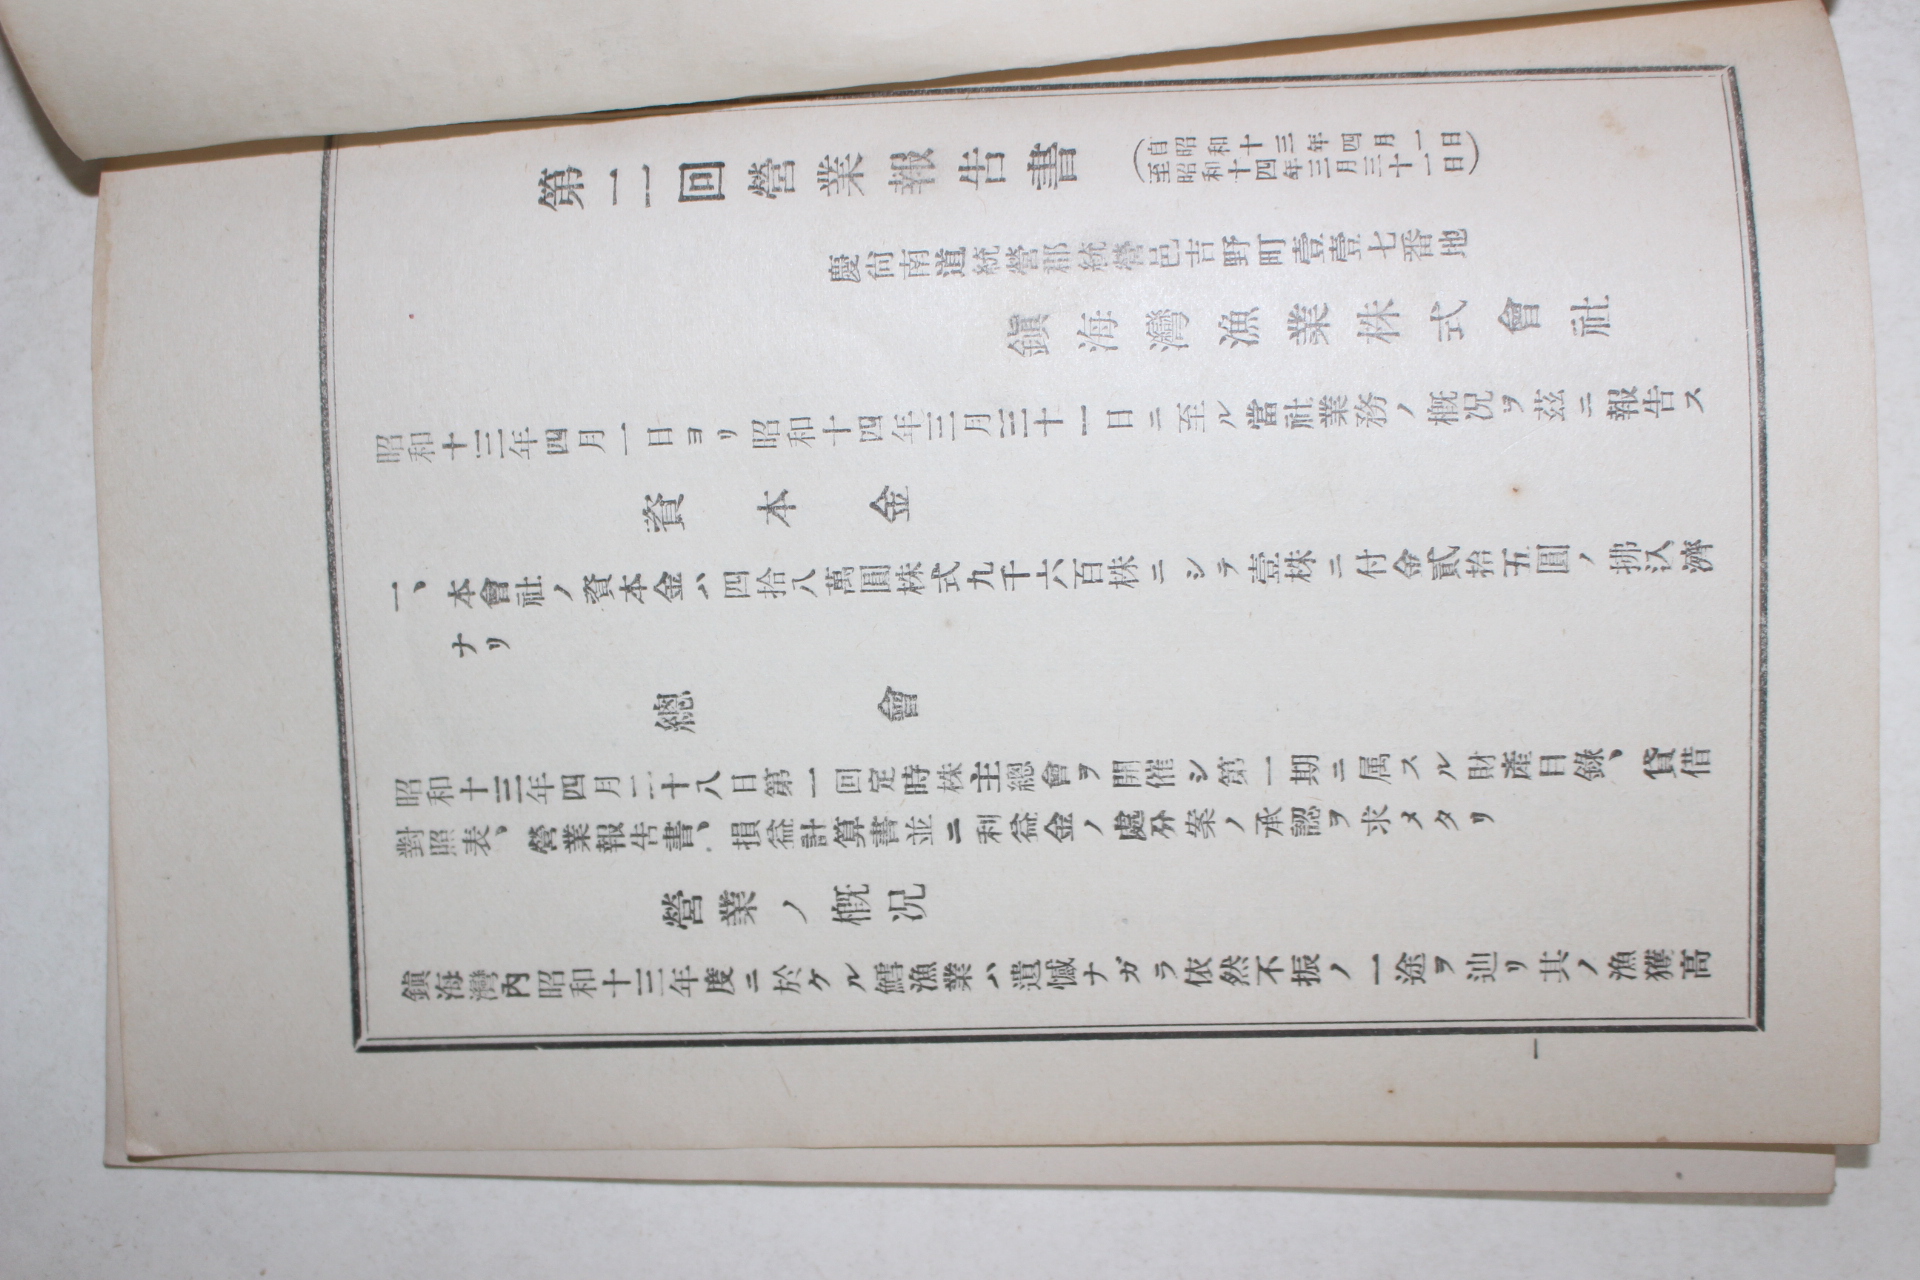 第二回營業報告書
自昭和十三年四月一日
至昭和十四年三月三十一日
慶尙南道統營郡統營邑吉野町壹壹七番地
鎭海灣漁業株式會社
昭和十三年四月一日ヨリ昭和十四年三月三十一日ニ至ル當社業務ノ槪況ヲ茲ニ報告ス
資本金
一、本會社ノ資本金ハ四拾八萬圓株式九千六百株ニシテ壹株ニ付金貳拾五圓ノ拂込濟
ナリ
總會
昭和十三年四月二十八日第一回定時株主總會ヲ開催シ第一期ニ属スル財產目錄、貸借
對照表、營業報告書、損益計算書並ニ利益金ノ處分案ノ承認ヲ求メタリ
營業ノ槪況
鎭海灣內昭和十三年度ニ於ケル鱈漁業ハ遺憾ナガラ依然不振ノ一途ヲ辿リ其ノ漁獲高
一